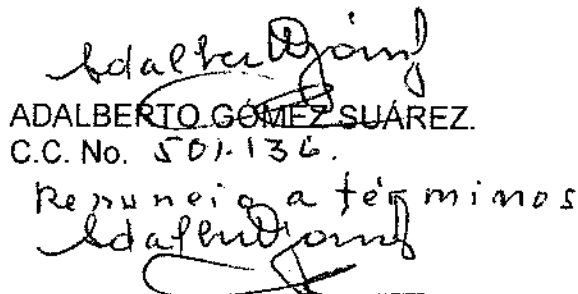 Adalberto Gómez
ADALBERTO GÓMEZ SUÁREZ.
C.C. No. 501.136.
Renuncio a términos
Adalberto Gómez